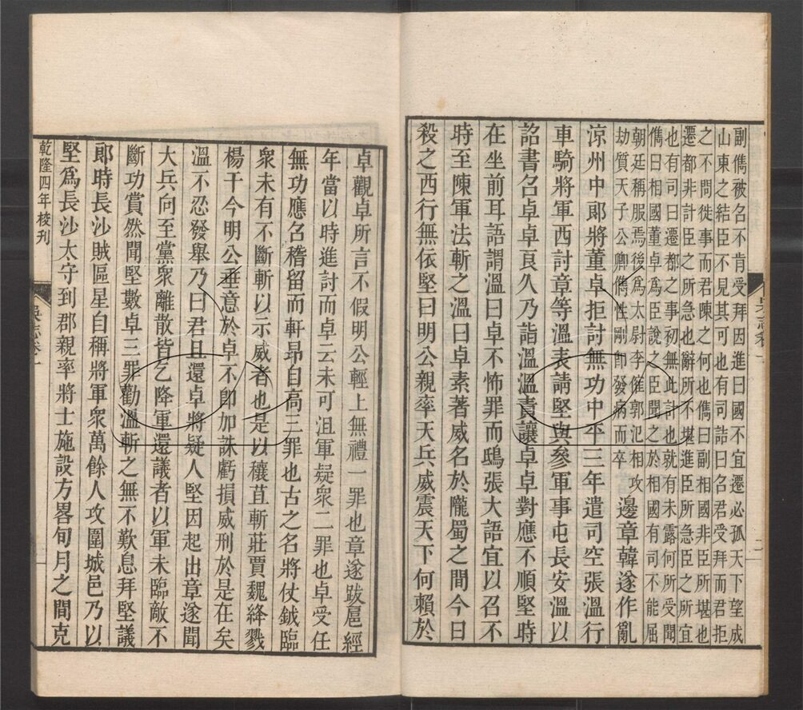 副儁被名不肯受拜因進曰國不宜遷必孤天下望成
山東之結臣不見其可也有司詰曰名君受拜而君拒
之不問徙事而君陳之何也儁曰副相國非臣所堪也
遷都非計臣之所急也辭所不堪進臣所急臣之所宜
也有司曰遷都之事初無此計也就有未露何所受聞
儁曰相國董卓爲臣說之臣聞之於相國有司不能屈
朝廷稱服焉後爲太尉李傕郭汜相攻
劫質天子公卿儁性剛即發病而卒
邊章韓遂作亂
涼州中郎將董卓拒討無功中平三年遣司空張溫行
車騎將軍西討章等溫表請堅與參軍事屯長安溫以
詔書名卓卓良久乃詣溫溫責讓卓卓對應不順堅時
在坐前耳語謂溫曰卓不怖罪而鴟張大語宜以召不
時至陳軍法斬之溫曰卓素著威名於隴蜀之間今日
殺之西行無依堅曰明公親率天兵威震天下何賴於
吳志卷一
二
卓觀卓所言不假明公輕上無禮一罪也章遂跋扈經
年當以時進討而卓云未可沮軍疑衆二罪也卓受任
無功應名稽留而軒昂自高三罪也古之名將仗鉞臨
衆未有不斷斬以示威者也是以穰苴斬莊賈魏絳戮
楊干今明公垂意於卓不即加誅虧損威刑於是在矣
溫不忍發舉乃曰君且還卓將疑人堅因起出章遂聞
大兵向至黨衆離散皆乞降軍還議者以軍未臨敵不
斷功賞然聞堅數卓三罪勸溫斬之無不歎息拜堅議
郎時長沙賊區星自稱將軍衆萬餘人攻圍城邑乃以
堅爲長沙太守到郡親率將士施設方畧旬月之間克
乾隆四年校刊
吳志卷一